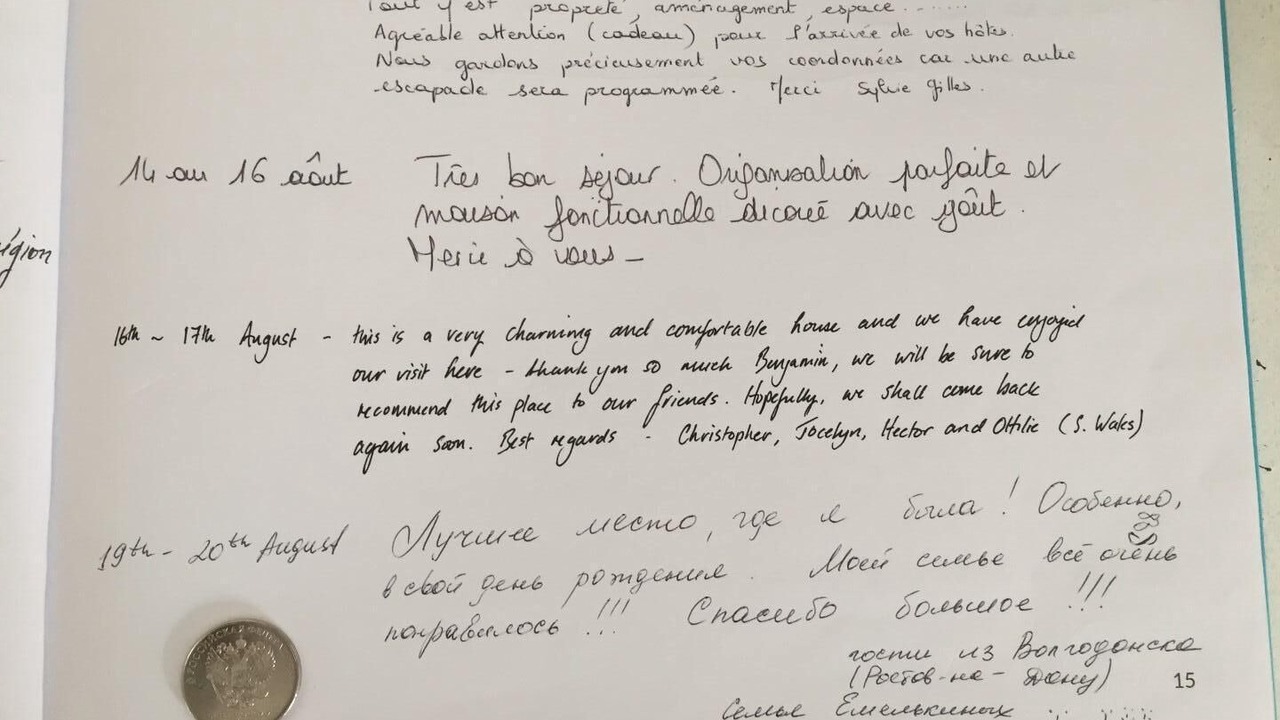 Tout y est propreté, aménagement, espace.......
Agréable attention (cadeau) pour l'arrivée de vos hôtes.
Nous gardons précieusement vos coordonnées car une autre
escapade sera programmée. Merci Sylvie Gilles.
14 au 16 août Très bon séjour. Organisation parfaite et
maison fonctionnelle décoré avec goût.
Merie à vous_
égion
16th ~ 17th August - this is a very charning and comfortable house and we have enjoyed
our visit here - thank you so much Benjamin, we will be sure to
recommend this place to our friends. Hopefully, we shall come back
again soon. Best regards - Christopher, Jocelyn, Hector and Ottilie (S. Wales)
19th - 20th August Лучшее место, где я была! Особенно,
в свой день рождения. Моей семье всё очень
понравилось!!! Спасибо большое!!!
гости из Волгодонска
(Ростов-на-Дону)
Семья Емелькиных
15